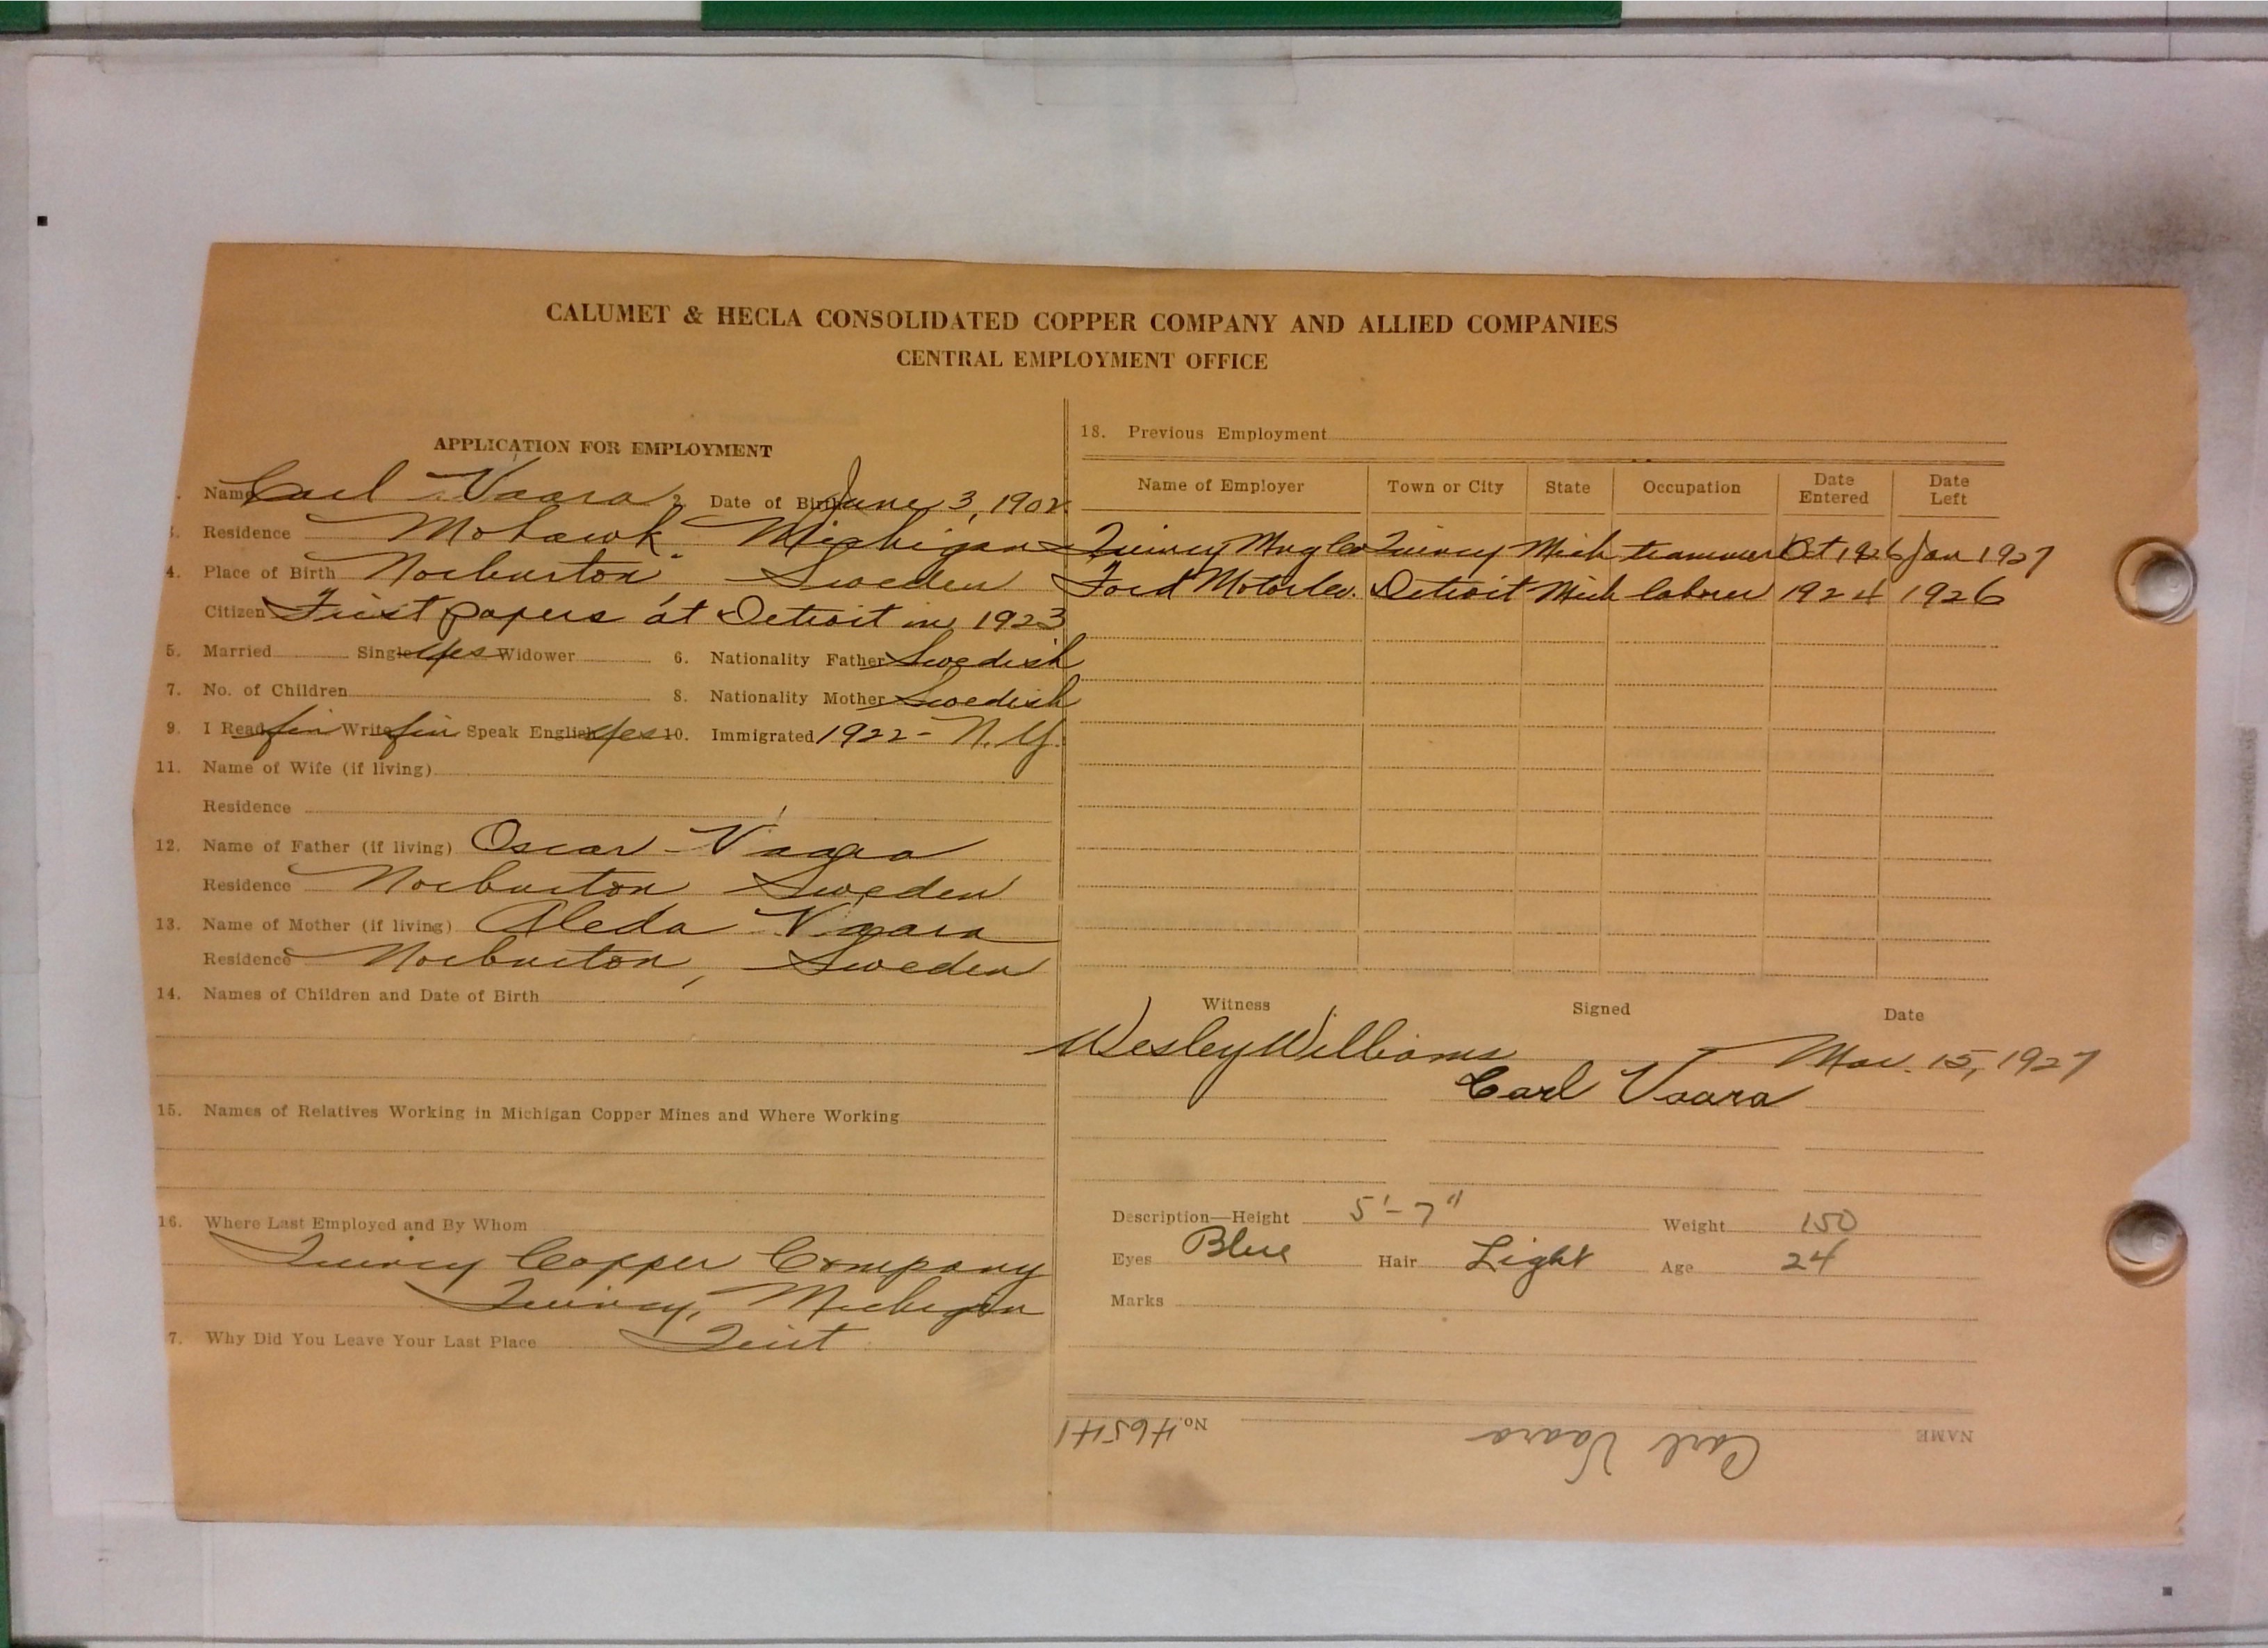 CALUMET & HECLA CONSOLIDATED COPPER COMPANY AND ALLIED COMPANIES
CENTRAL EMPLOYMENT OFFICE
APPLICATION FOR EMPLOYMENT
Name Carl Vaara 2. Date of Birth June 3, 1902
3. Residence Mohawk, Michigan
4. Place of Birth Norburton, Sweden
Citizen First papers at Detroit in 1923
5. Married Single Yes Widower 6. Nationality Father Swedish
7. No. of Children 8. Nationality Mother Swedish
9. I Read fin Write fin Speak English Yes 10. Immigrated 1922 - N.Y.
11. Name of Wife (if living)
Residence
12. Name of Father (if living) Oscar Vaara
Residence Norburton Sweden
13. Name of Mother (if living) Aleda Vaara
Residence Norburton, Sweden
14. Names of Children and Date of Birth
15. Names of Relatives Working in Michigan Copper Mines and Where Working
16. Where Last Employed and By Whom
Quincy Copper Company
Quincy, Michigan
7. Why Did You Leave Your Last Place Quit
18. Previous Employment
Name of Employer Town or City State Occupation Date Entered Date Left
Quincy Mng Co Quincy Mich trammer Oct 1926 Jan 1927
Ford Motor Co. Detroit Mich laborer 1924 1926
Witness Signed Date
Wesley Williams Mar. 15, 1927
Carl Vaara
Description—Height 5'-7" Weight 150
Eyes Blue Hair Light Age 24
Marks
NAME Carl Vaara No. 46541